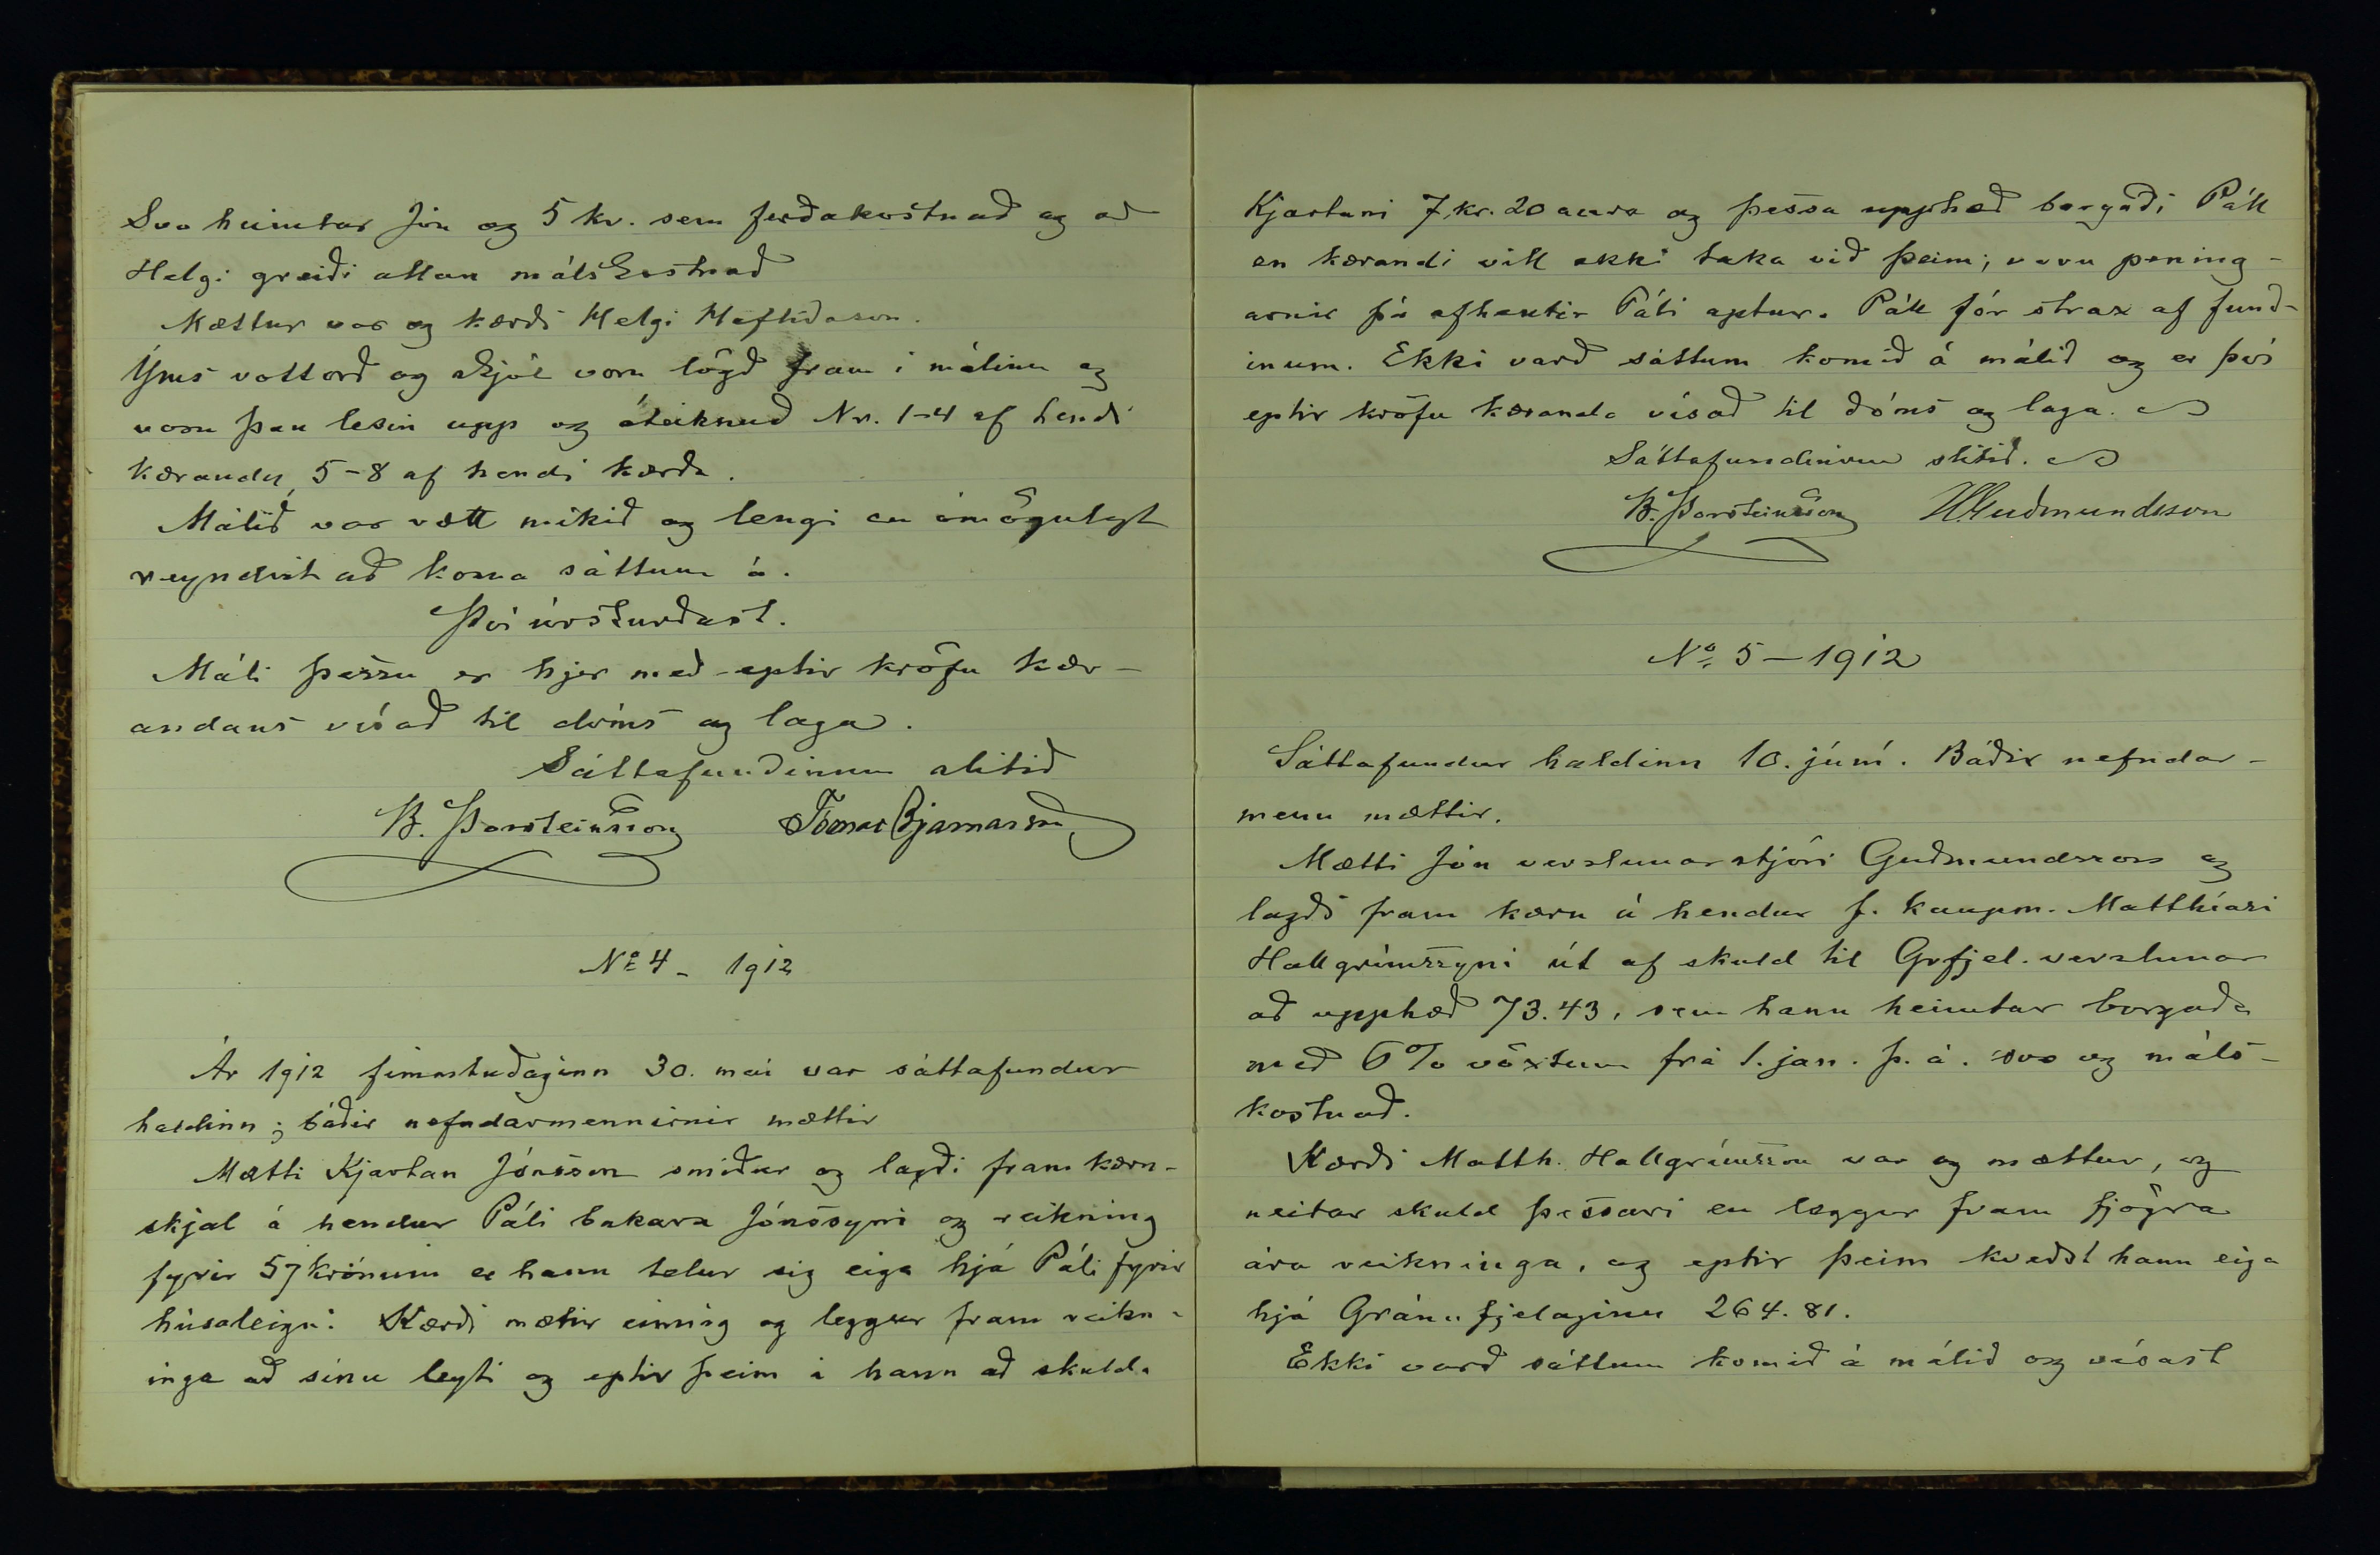 Svo heimtar Jón og 5 kr. sem ferðakostnað og að
Helgi greiði allan málskostnað
Mættur var og kærði Helgi Hafliðason.
Ýms vottorð og skjöl voru lögð fram í málinu og
voru þau lesin upp og áteiknuð Nr. 1-4 af hendi
kæranda, 5-8 af hendi kærða.
Málið var rætt mikið og lengi en ómögulegt
reyndist að koma sáttum á.
Því úrskurðast.
Máli þessu er hjer með eptir kröfu kær-
andans vísað til dóms og laga.
Sáttafundinum slitið
B. Þorsteinsson Tómas Bjarnarson
No 4 - 1912
Ár 1912 fimmtudaginn 30. maí var sáttafundur
haldinn; báðir nefndarmennirnir mættir
Mætti Kjartan Jónsson smiður og lagði fram kæru-
skjal á hendur Páli bakara Jónssyni og reikning
fyrir 57 krónum er hann telur sig eiga hjá Páli fyrir
húsaleigu: Kærði mætir einnig og leggur fram reikn-
inga að sínu leyti og eptir þeim á hann að skulda
Kjartani 7 kr. 20 aura og þessa upphæð borgaði Páll
en kærandi vill ekki taka við þeim; voru pening-
arnir þá afhentir Páli aptur. Páll fór strax af fund-
inum. Ekki varð sáttum komið á málið og er því
eptir kröfu kæranda vísað til dóms og laga.
Sáttafundinum slitið.
B. Þorsteinsson HGuðmundsson
No. 5 - 1912
Sáttafundur haldinn 10. júní. Báðir nefndar-
menn mættir.
Mætti Jón verslunarstjóri Guðmundsson og
lagði fram kæru á hendur f. kaupm. Matthíasi
Hallgrímssyni út af skuld til Grfjel. verslunar
að upphæð 73.43, sem hann heimtar borgaða
með 6% vöxtum frá 1. jan. þ. á. svo og máls-
kostnað.
Kærði Matth. Hallgrímsson var og mættur, og
neitar skuld þessari en leggur fram fjögra
ára reikninga, og eptir þeim kveðst hann eiga
hjá Gránufjelaginu 264.81.
Ekki varð sáttum komið á málið og vísast